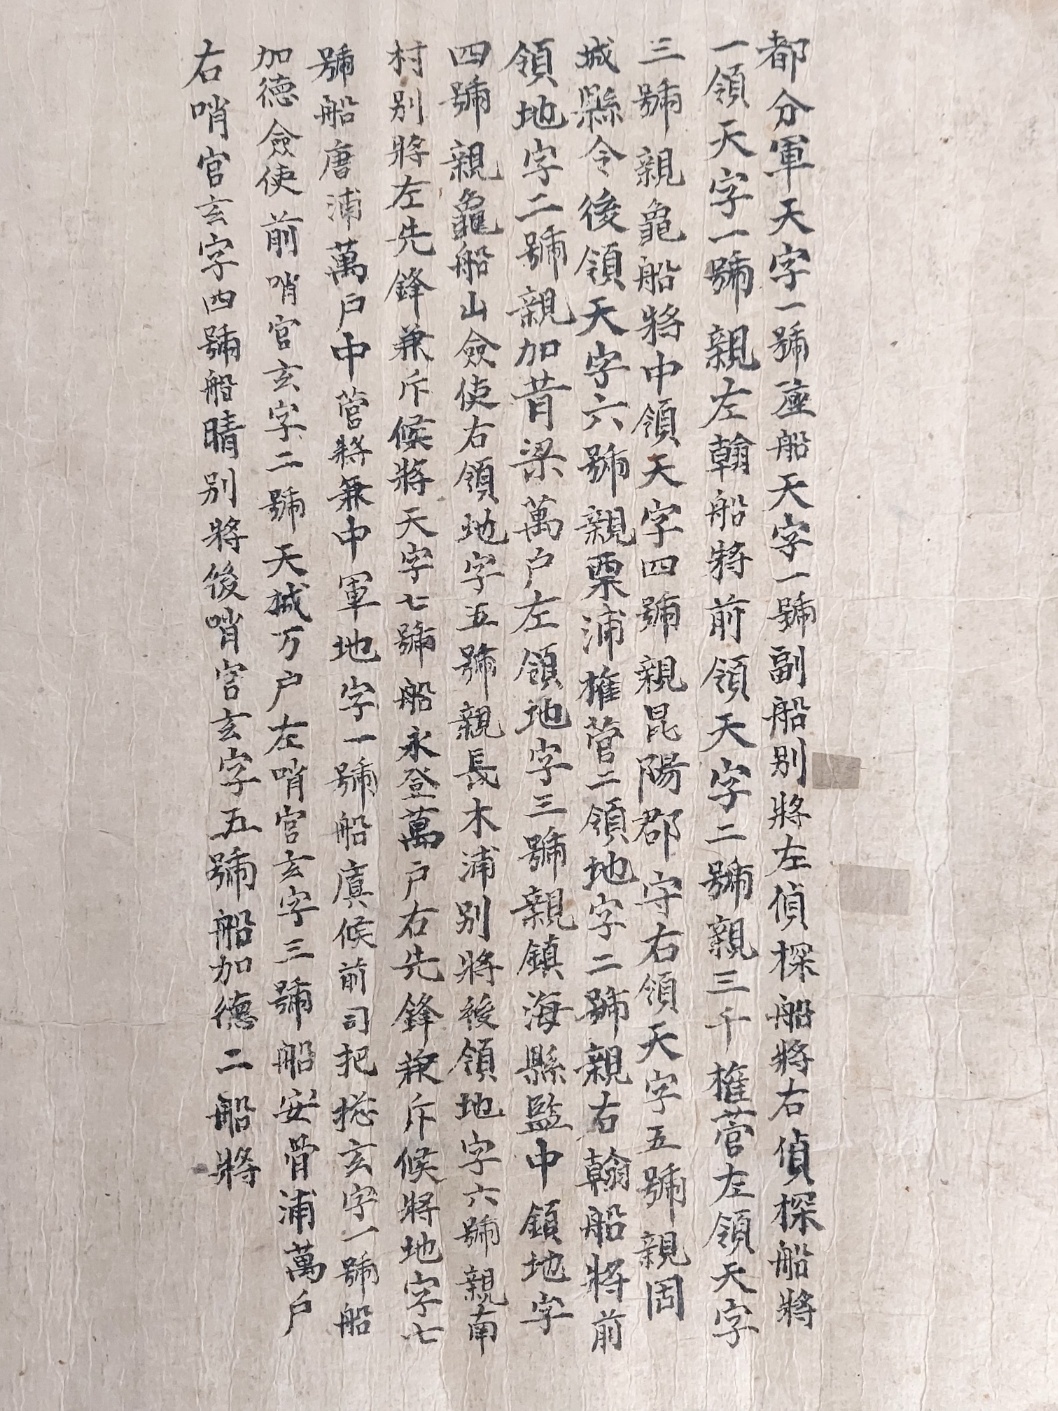 都分軍天字一號座船天字一號副船別將左偵探船將右偵探船將
一領天字一號親左翰船將前領天字二號親三千權菅左領天字
三號親龜船將中領天字四號親昆陽郡守右領天字五號親固
城縣令後領天字六號親栗浦權菅二領地字二號親右翰船將前
領地字二號親加背梁萬户左領地字三號親鎮海縣監中領地字
四號親龜船山僉使右領地字五號親長木浦別將後領地字六號親南
村別將左先鋒兼斥候將天字七號船永登萬户右先鋒兼斥候將地字七
號船唐浦萬户中營將兼中軍地字一號船虞候前司把摠玄字一號船
加德僉使前哨官玄字二號天城万户左哨官玄字三號船安骨浦萬户
右哨官玄字四號船晴別將後哨官玄字五號船加德二船將